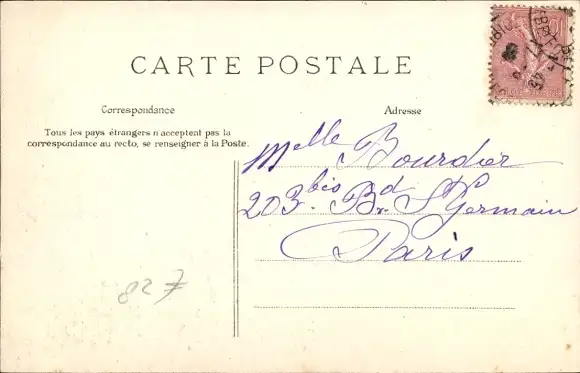 CARTE POSTALE
Correspondance
Adresse
Tous les pays étrangers n'acceptent pas la
correspondance au recto, se renseigner à la Poste.
Melle Bourdier
203 bis Bd St Germain
Paris
827